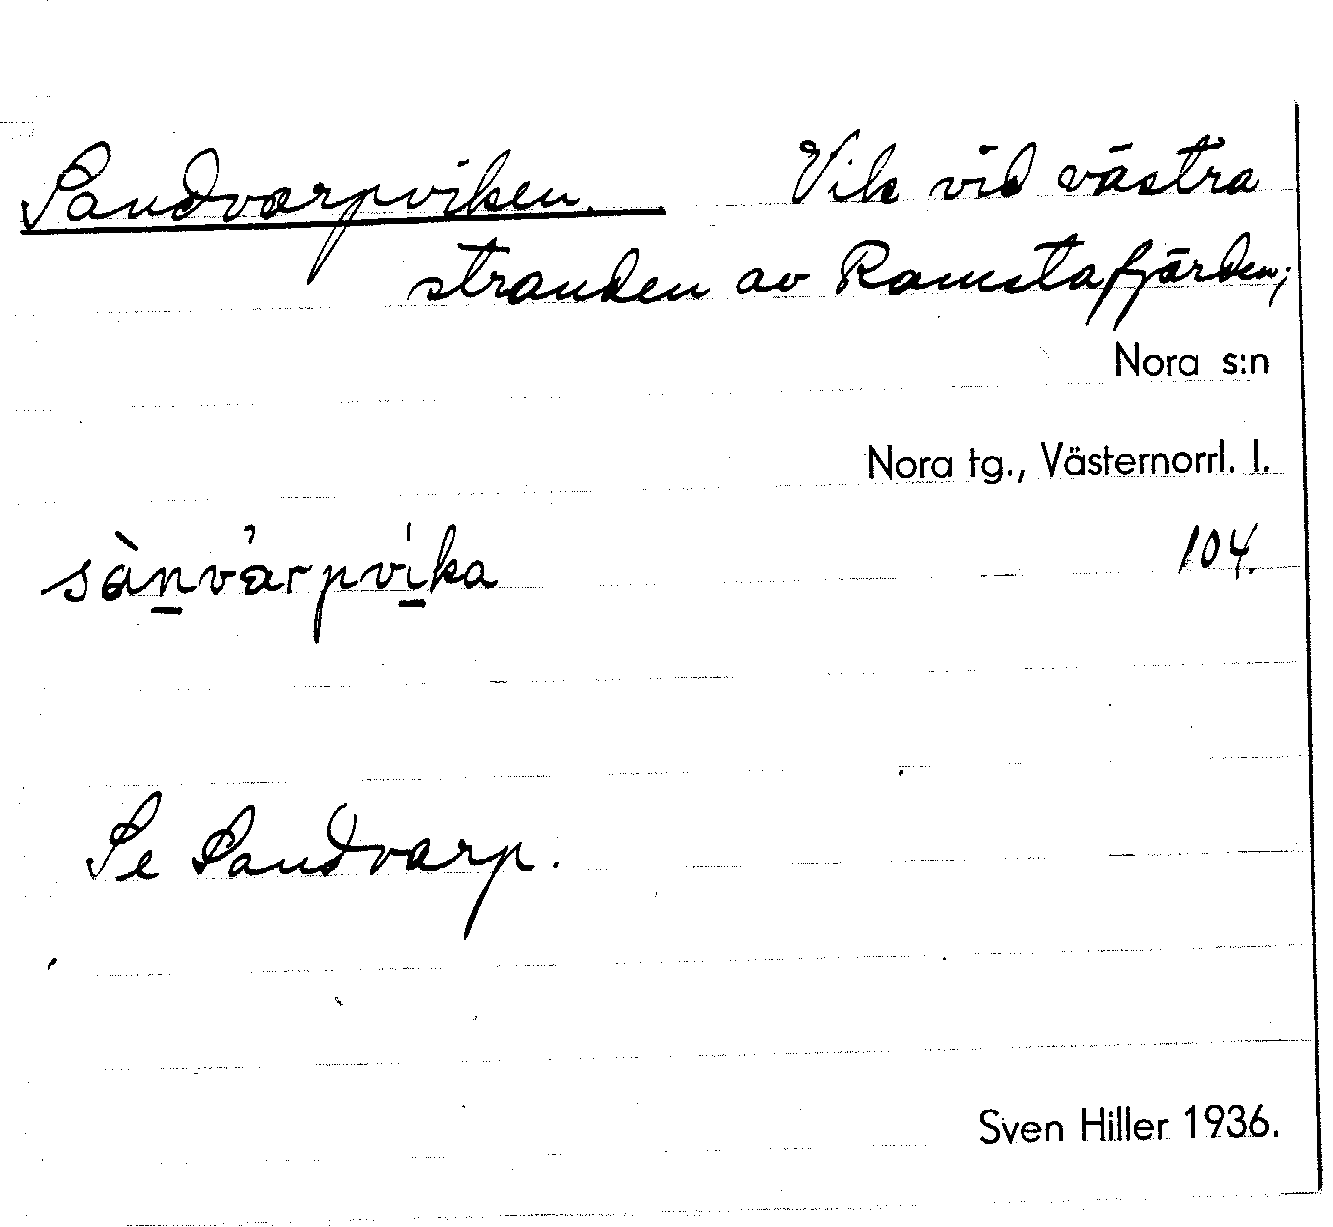 Sandvarpviken. Vik vid västra
stranden av Ramstafjärden;
Nora s:n
Nora tg., Västernorrl. l.
sànv̓arpvi̍ka 104.
Se Sandvarp.
Sven Hiller 1936.